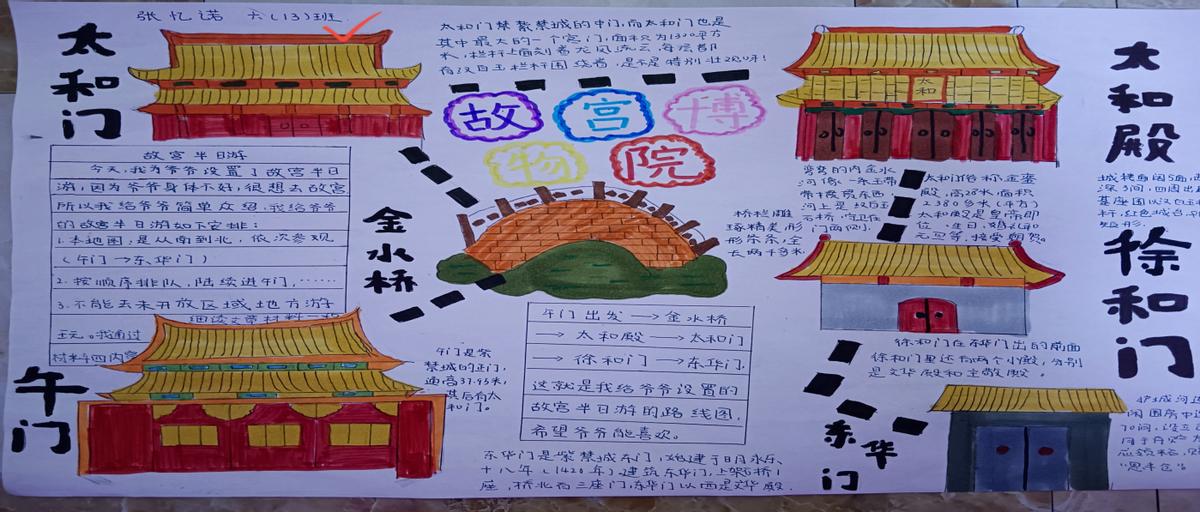 张忆诺 六(13)班
太和门
太和门禁紫禁城的中门,而太和门也是
其中最大的一个宫门,面积为1300平方
米,栏杆上面刻着龙凤流云,每层都
有汉白玉栏杆围绕着,是不是特别壮观呀!
故宫博
物院
太和
太和殿
故宫半日游
今天,我为爷爷设置了故宫半日
游,因为爷爷身体不好,很想去故宫
所以我给爷爷简单介绍,我给爷爷
的故宫半日游如下安排:
1.本地图,是从南到北,依次参观
(午门→东华门)
2.按顺序排队,陆续进午门,……
3.不能去未开放区域地方游
玩。我通过
材料
金水桥
桥栏雕
琢精美,形
形杀杀,全
长两千多米
弯弯的内金水
河像一条玉带
河上是汉白玉
石桥,守卫在
门两则。
太和殿俗称,金銮
殿,高28米,面积
2380多米(平方)
太和殿是皇帝即
位、生日、婚礼和
元旦等,接受朝贺。
徐和门
午门
午门是紫
禁城的正门,
通高37.95米,
其后有太
和门。
午门出发→金水桥
→太和殿→太和门
→徐和门→东华门。
这就是我给爷爷设置的
故宫半日游的路线图,
希望爷爷能喜欢。
徐和门在东华门出的前面
徐和门里还有两个小殿,分别
是文华殿和主敬殿。
东华门
东华门是紫禁城东门,始建于日月永乐
十八年(1420年)建筑东华门,上架石桥1
座,桥北有三座门,东华门以西是文华殿.